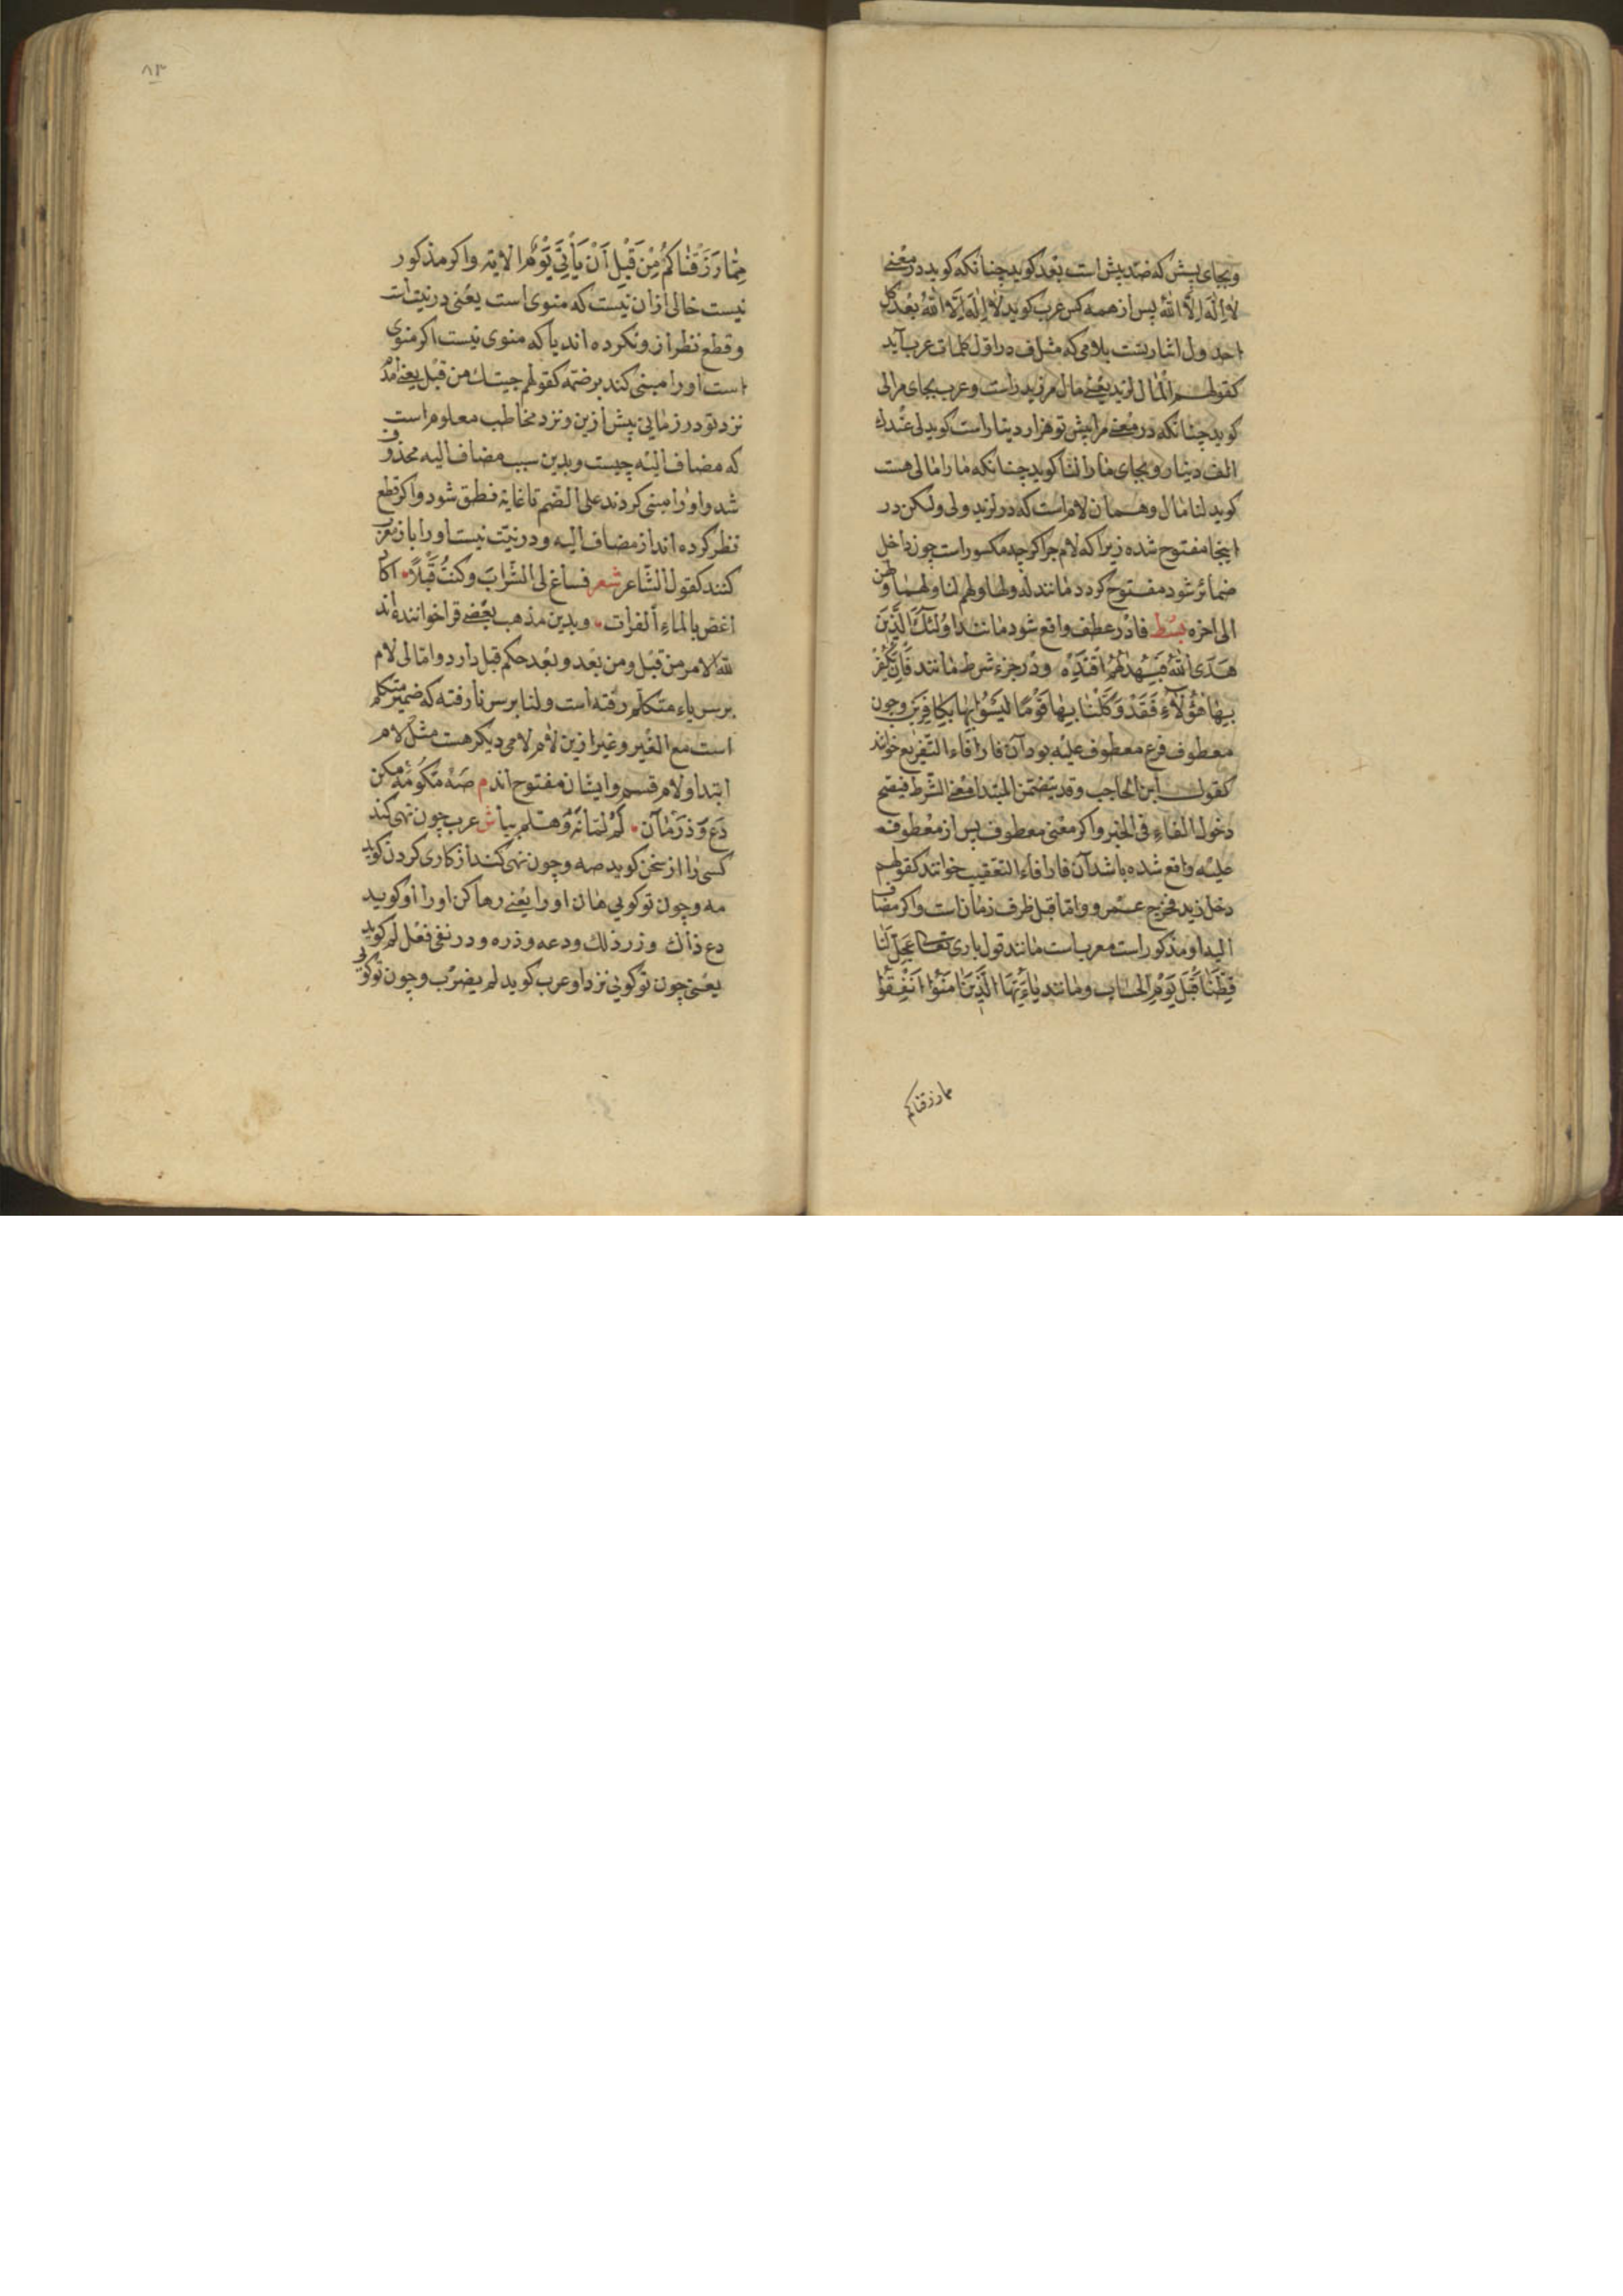 وبجای پیش که ضد پیش است بَعْد کوید چنانکه کوید در معْنی
لا اِلٰهَ اِلّا اللّٰهُ پس از همه کس عرب کوید لا اِلٰهَ اِلَّا اللّٰهُ بَعْدَ کلِّ
احد ول اشارتست بلامی که مثل ف در اوّل کلمات عرب آید
کقولهم اَلْمال لزید یعْنی مال مر زید راست وعرب بجای مرا لی
کوید چنانکه در معْنی مرا پیش تو هزار دینار است کوید لی عنْدك
الف دینار وبجای ما را لنا کوید چنانکه ما را مالی هست
کوید لنا مال وهمان لام است که در لزید ولی ولیکن در
اینجا مفتوح شده زیرا که لام جر اکرچه مکسور است چون داخل
ضمائر شود مفتوح کردد مانند له ولها ولهم لنا ولهما ولهن
الی اخره بسط فا در عطف واقع شود مانند اُولٰئِكَ الَّذِینَ
هَدَی اللّٰهُ فَبِهُدٰیهُمُ اقْتَدِهْ ودر جزء شرط مانند فَاِنْ یَکْفُرْ
بِهٰا هٰؤُلآءِ فَقَدْ وَکَّلْنٰا بِهٰا قَوْمًا لَیْسُوْا بِهٰا بِکٰافِرِیْنَ وچون
معطوف فرع معطوف علیْه بود آن فا را فاء التّفریع خوانند
کقول ابن الحاجب وقد یتضمّن المبْتدا معْنی الشّرط فیصّح
دخول الفاءِ فی الخبر واکر معْنی معطوف پس از معْطوف
علیْه واقع شده باشد آن فا را فاء التعْقیب خوانند کقولهم
دخل زید فخرج عمرو وامّا قبل ظرف زمان است واکر مضاف
الیه او مذکور است معرب است مانند قول باری تعالی عَجِّلْ لَنٰا
قِطَّنٰا قَبْلَ یَوْمِ الْحِسٰابِ ومانند یٰاءَیُّهَا الَّذِیْنَ اٰمَنُوْا اَنْفِقُوْا
مما رزقناکم
٨٣
مِمّٰا رَزَقْنٰاکُمْ مِنْ قَبْلِ اَنْ یَأْتِیَ یَوْمٌ الایة واکر مذکور
نیست خالی ازان نیست که منوی است یعْنی در نیّت است
وقطع نظر از و نکرده اند یا که منوی نیست اکر منوی
است او را مبنی کند بر ضمّه کقولهم جیتك من قبْل یعنی امدم
نزد تو در زمانی پیش ازین ونزد مخاطب معلوم است
که مضاف الیْه چیست وبدین سبب مضاف الیه محذوف
شد واو را مبنی کردند علی الضّم تا غایة نطق شود واکر قطع
نظر کرده اند از مضاف الیه ودر نیّت نیست او را باز معرب
کنند کقول الشّاعر شعر فساغ لی الشّرابَ وکنتُ قَبْلاً اکادُ
اغصّ بالماءِ اَلفرات وبدین مذهب بعْضی قرا خوانندهٔ اند
للّٰه الامر من قبْل ومن بَعْد وبعْد حکم قبل دارد وامّا لی لام
بر سر یاء متکلّم رفته است ولنا بر سر نا رفته که ضمیر متکلّم
است مع الغیر وغیر ازین لام لامی دیکر هست مثل لام
ابتدا ولام قسم وایشان مفتوح اند م صَهْ مَکُو مَهْ مکن
دَعْ وَذَرْ مٰان لَمْ لمٰا نَه وهَلُمّ بیا ش عرب چون نهی کند
کسی را از سخن کوید صه وچون نهی کند از کاری کردن کوید
مه وچون تو کویی مان او را یعْنی رها کن او را او کوید
دع ذاك وذر ذلك ودعه وذره ودر نفی فعْل لم کوید
یعْنی چون تو کوئی نزد او عرب کوید لم یضرب وچون تو کوئی